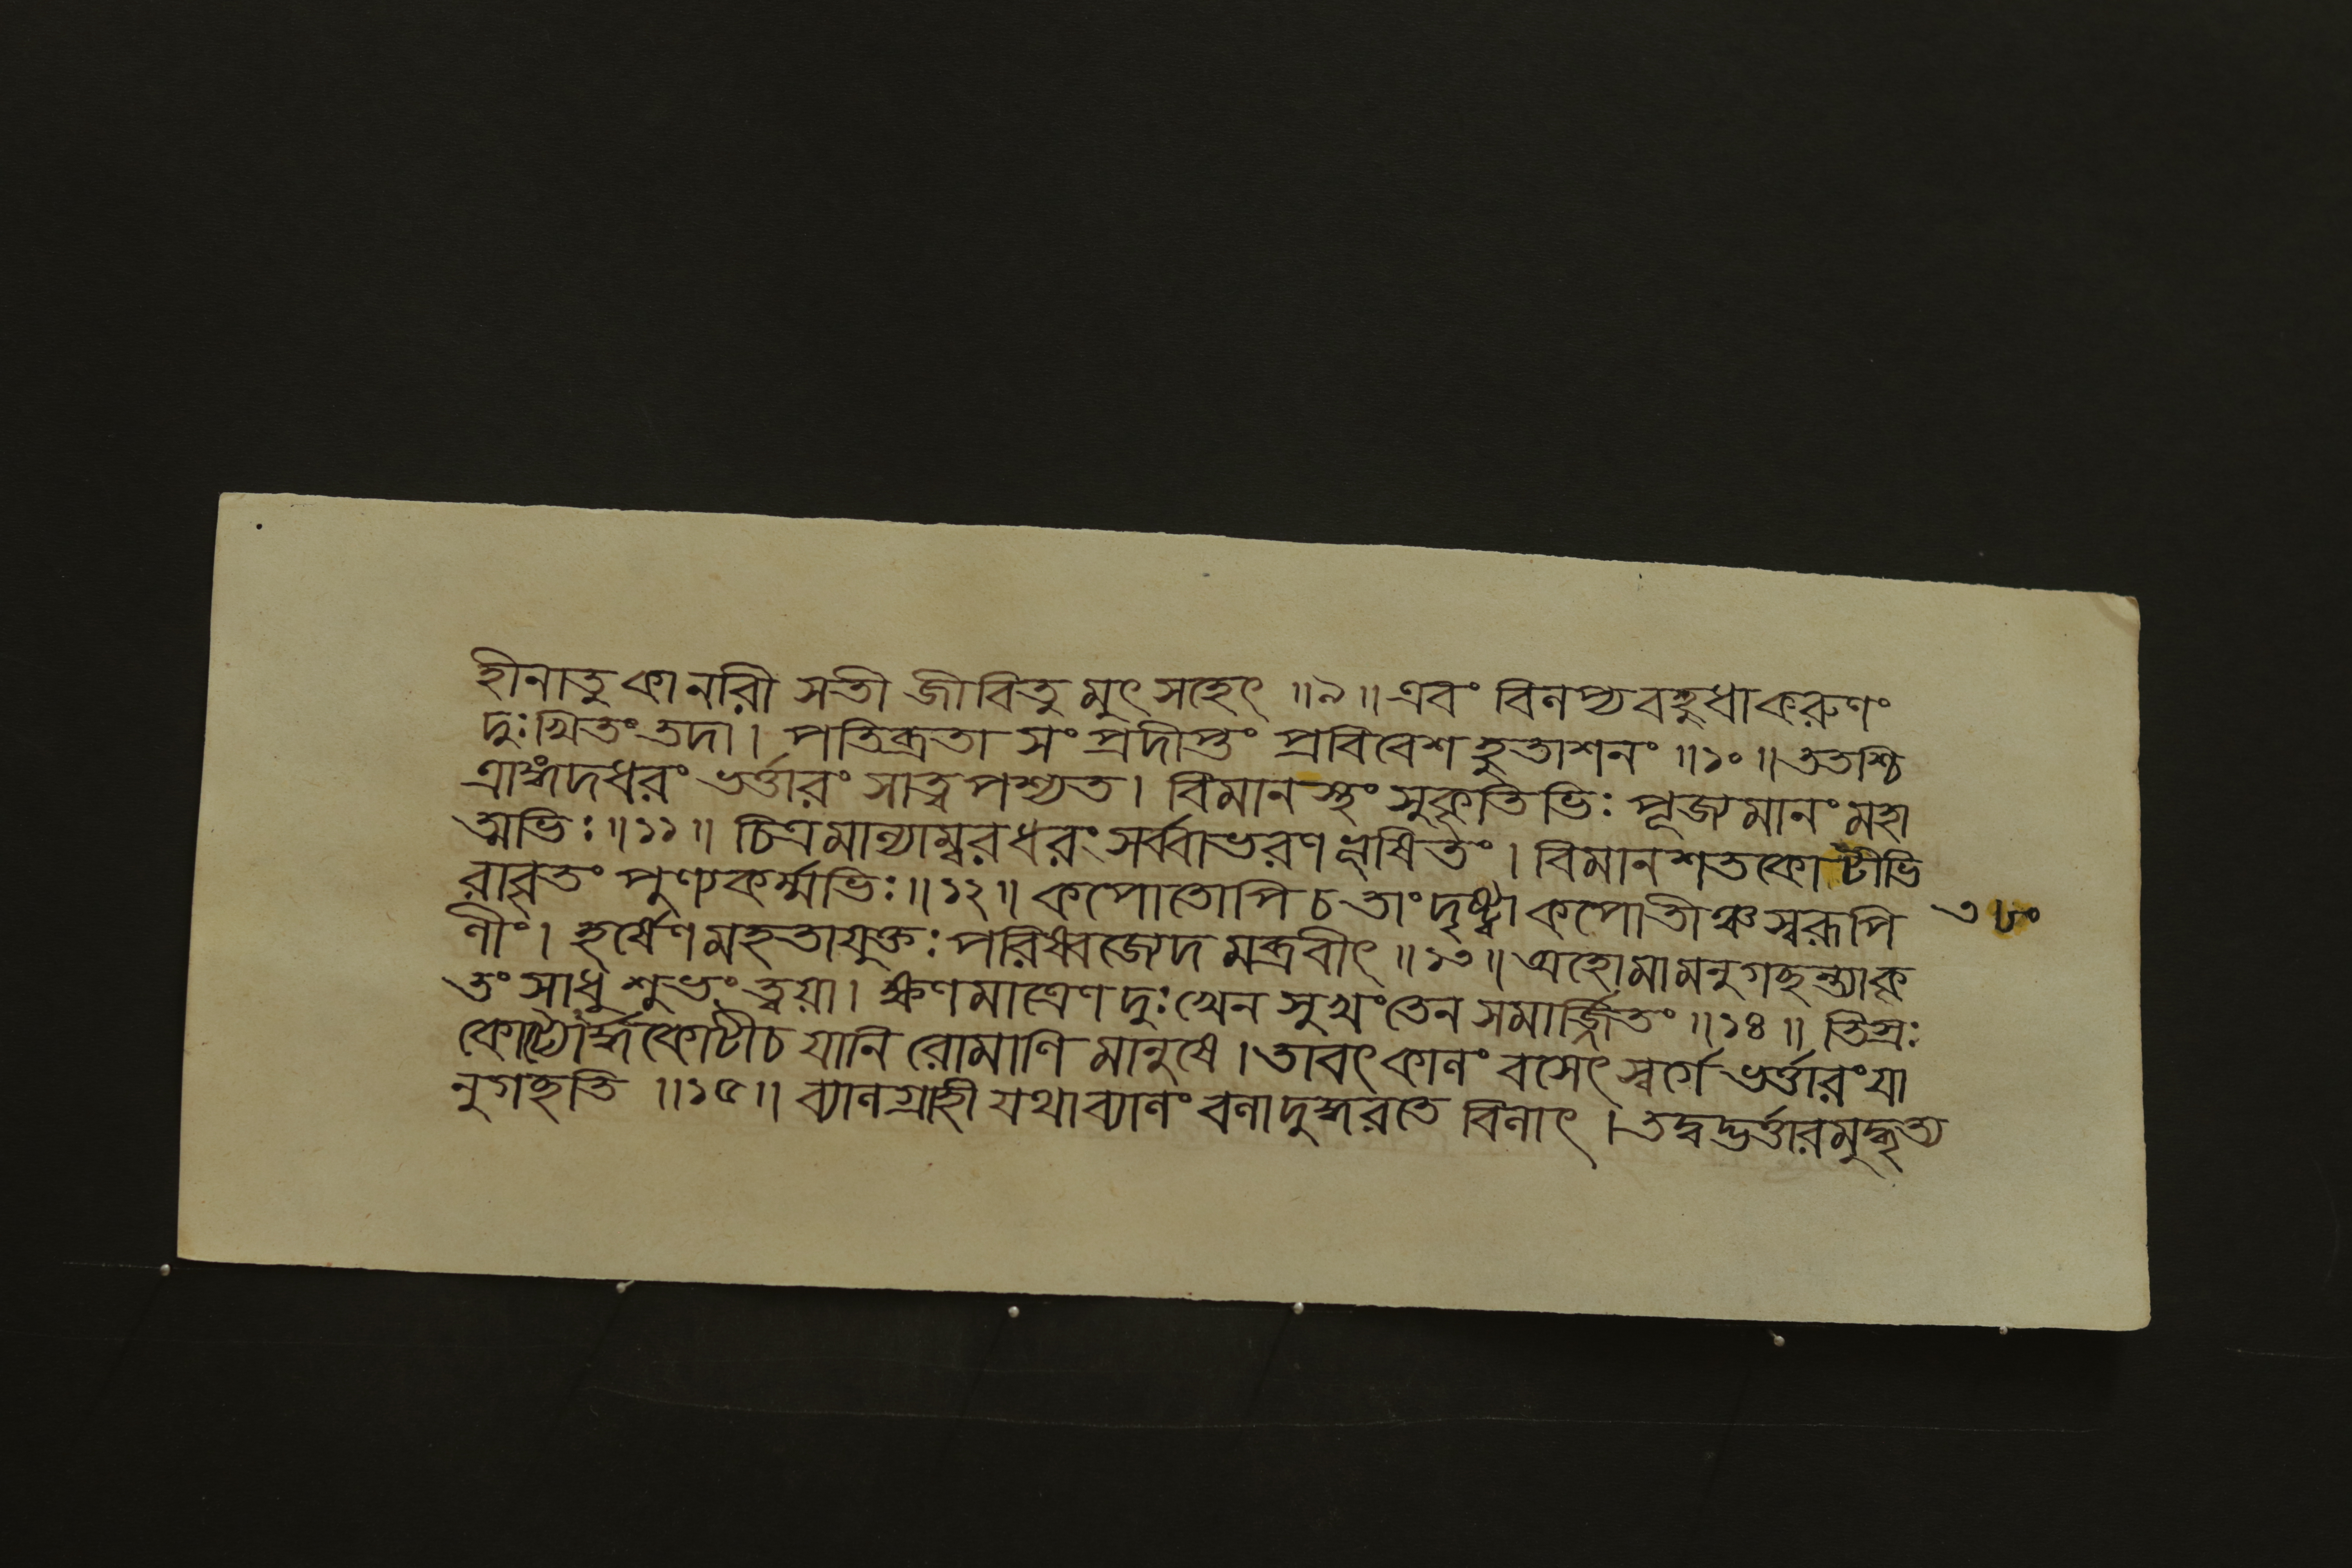 হীনাতু কানারী সতী জীবিতু মুৎ সহেৎ ॥৯॥ এবং বিলপ্য বহুধাকরুণং
দুঃখিতং তদা। পতিব্রতা সং প্রদীপ্তং প্রবিবেশ হুতাশনং ॥১০॥ ততশ্চি
ত্রাঙ্গদধরং ভর্ত্তারং সাত্ব পশ্যত। বিমান স্থং সুকৃতিভিঃ পূজ্যমানং মহা
ত্মভিঃ ॥১১॥ চিত্রমাল্যাম্বরধরং সর্ব্বাভরণ ভূষিতং। বিমানশতকোটীভি
রাবৃতং পুণ্যকর্ম্মভিঃ ॥১২॥ কপোতোপি চ তাং দৃষ্ট্বা কপোতীঞ্চ স্বরূপি
ণীং। হর্ষেণ মহতাযুক্তঃ পরিষ্বজ্যেদ মব্রবীৎ ॥১৩॥ অহোমামনুগচ্ছন্ত্যাকৃ
তং সাধু শুভং ত্বয়া। ক্ষণমাত্রেণ দুঃখেন সুখং তেন সমার্জ্জিতং ॥১৪॥ তিস্রঃ
কোট্যোর্দ্ধকোটীচ যানি রোমাণি মানুষে। তাবৎ কালং বসেৎ স্বর্গে ভর্ত্তারং যা
নুগচ্ছতি ॥১৫॥ ব্যালগ্রাহী যথাব্যালং বলাদুদ্ধরতে বিলাৎ। তদ্বদ্ভর্ত্তারমুদ্ধৃত্য